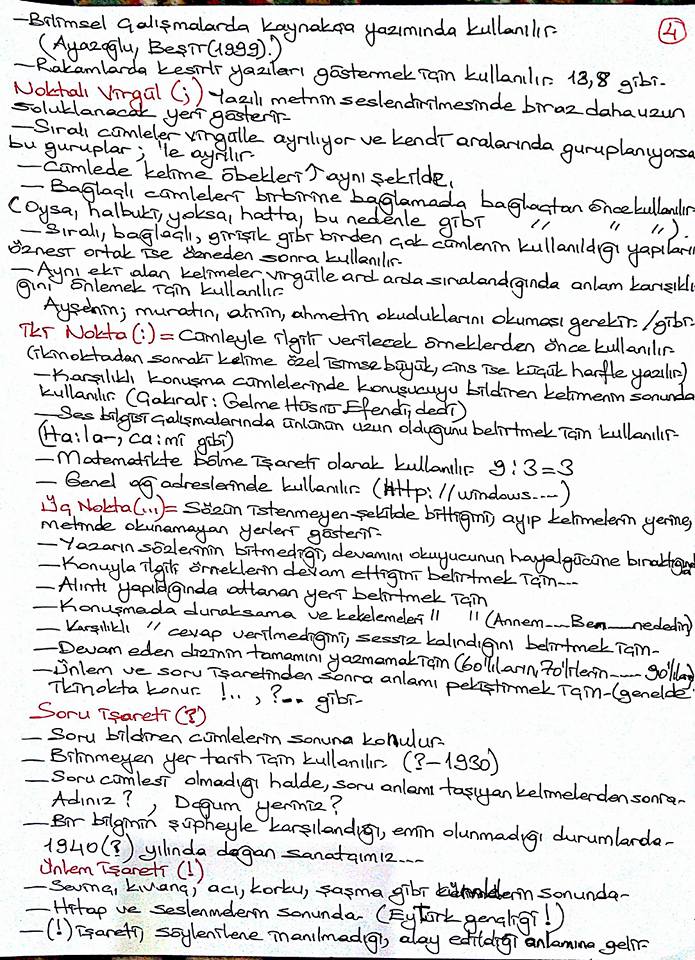 - Bilimsel çalışmalarda kaynakça yazımında kullanılır.
(Ayazoğlu, Beşir (1999).)
4
- Rakamlarda kesirli yazıları göstermek için kullanılır. 13,8 gibi-
Noktalı Virgül (;) - Yazılı metnin seslendirilmesinde biraz daha uzun
soluklanacak yeri gösterir-
- Sıralı cümleler virgülle ayrılıyor ve kendi aralarında guruplanıyorsa
bu guruplar ; 'le ayrılır-
- Cümlede kelime öbekleri de aynı şekilde.
- Bağlaçlı cümleleri birbirine bağlamada bağlaçtan önce kullanılır-
(Oysa, halbuki, yoksa, hatta, bu nedenle gibi " " ").
- Sıralı, bağlaçlı, girişik gibi birden çok cümlenin kullanıldığı yapıların
öznesi ortak ise özneden sonra kullanılır.
- Aynı eki alan kelimeler virgülle ard arda sıralandığında anlam karışıklı
ğını önlemek için kullanılır.
Ayşenin; muratın, alinin, ahmetin okuduklarını okuması gerekir. /gibi-
İki Nokta (:) = Cümleyle ilgili verilecek örneklerden önce kullanılır.
(ikinoktadan sonraki kelime özel isimse büyük, cins ise küçük harfle yazılır)
- Karşılıklı konuşma cümlelerinde konuşucuyu bildiren kelimenin sonunda
kullanılır (Çakıralı: Gelme Hüsnü Efendi, dedi)
- Ses bilgisi çalışmalarında ünlünün uzun olduğunu belirtmek için kullanılır-
(Ha:la-, ca:mi gibi)
- Matematikte bölme işareti olarak kullanılır. 9:3=3
- Genel ağ adreslerinde kullanılır. (http://windows....)
Üç Nokta (...) = Sözün istenmeyen şekilde bittiğini, ayıp kelimelerin yerine,
metinde okunamayan yerleri gösterir-
- Yazarın sözlerinin bitmediği, devamını okuyucunun hayalgücüne bıraktığında
- Konuyla ilgili örneklerin devam ettiğini belirtmek için---
- Alıntı yapıldığında atlanan yeri belirtmek için
- Konuşmada duraksama ve kekelemeleri " " (Annem.... Ben.... nededin)
- Karşılıklı " cevap verilmediğini, sessiz kalındığını belirtmek için-
- Devam eden dizinin tamamını yazmamak için (60'lıların, 70'lilerin ..... 90'lılar)
- Ünlem ve soru işaretinden sonra anlamı pekiştirmek için- (genelde
ikinokta konur. !.. , ?.. gibi-
Soru işareti (?)
- Soru bildiren cümlelerin sonuna konulur-
- Bilinmeyen yer tarih için kullanılır. (?-1930)
- Soru cümlesi olmadığı halde, soru anlamı taşıyan kelimelerden sonra-
Adınız? , Doğum yeriniz?
- Bir bilginin şüpheyle karşılandığı, emin olunmadığı durumlarda-
1940(?) yılında doğan sanatçımız...
Ünlem işareti (!)
- Sevinç, kıvanç, acı, korku, şaşma gibi cümlelerin sonunda-
- Hitap ve seslenmelerin sonunda. (Ey Türk gençliği!)
- (!) işareti, söylenilene inanılmadığı, alay edildiği anlamına gelir.